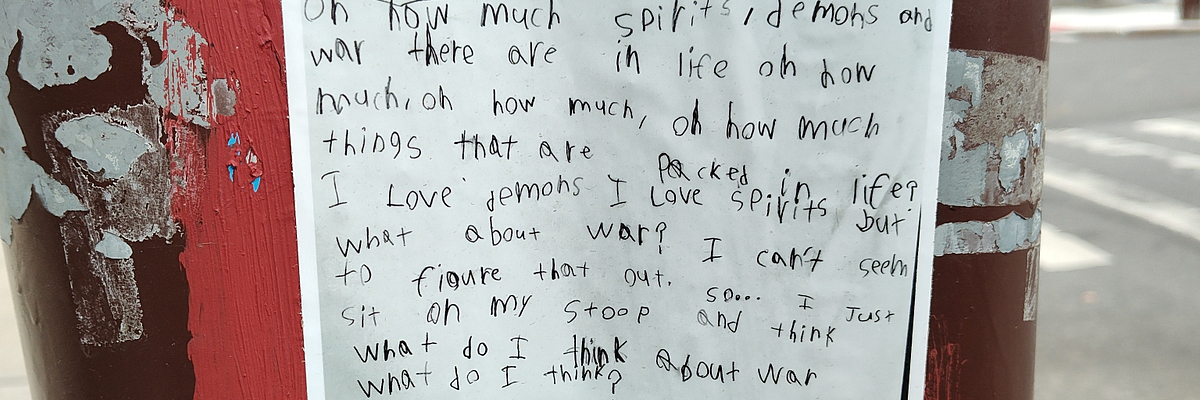 oh how much spirits, demons and
war there are in life oh how
much, oh how much, oh how much
things that are packed in life?
I Love demons I Love spirits but
what about war? I can't seem
to figure that out. so... I Just
sit on my stoop and think
what do I think about war
what do I think?